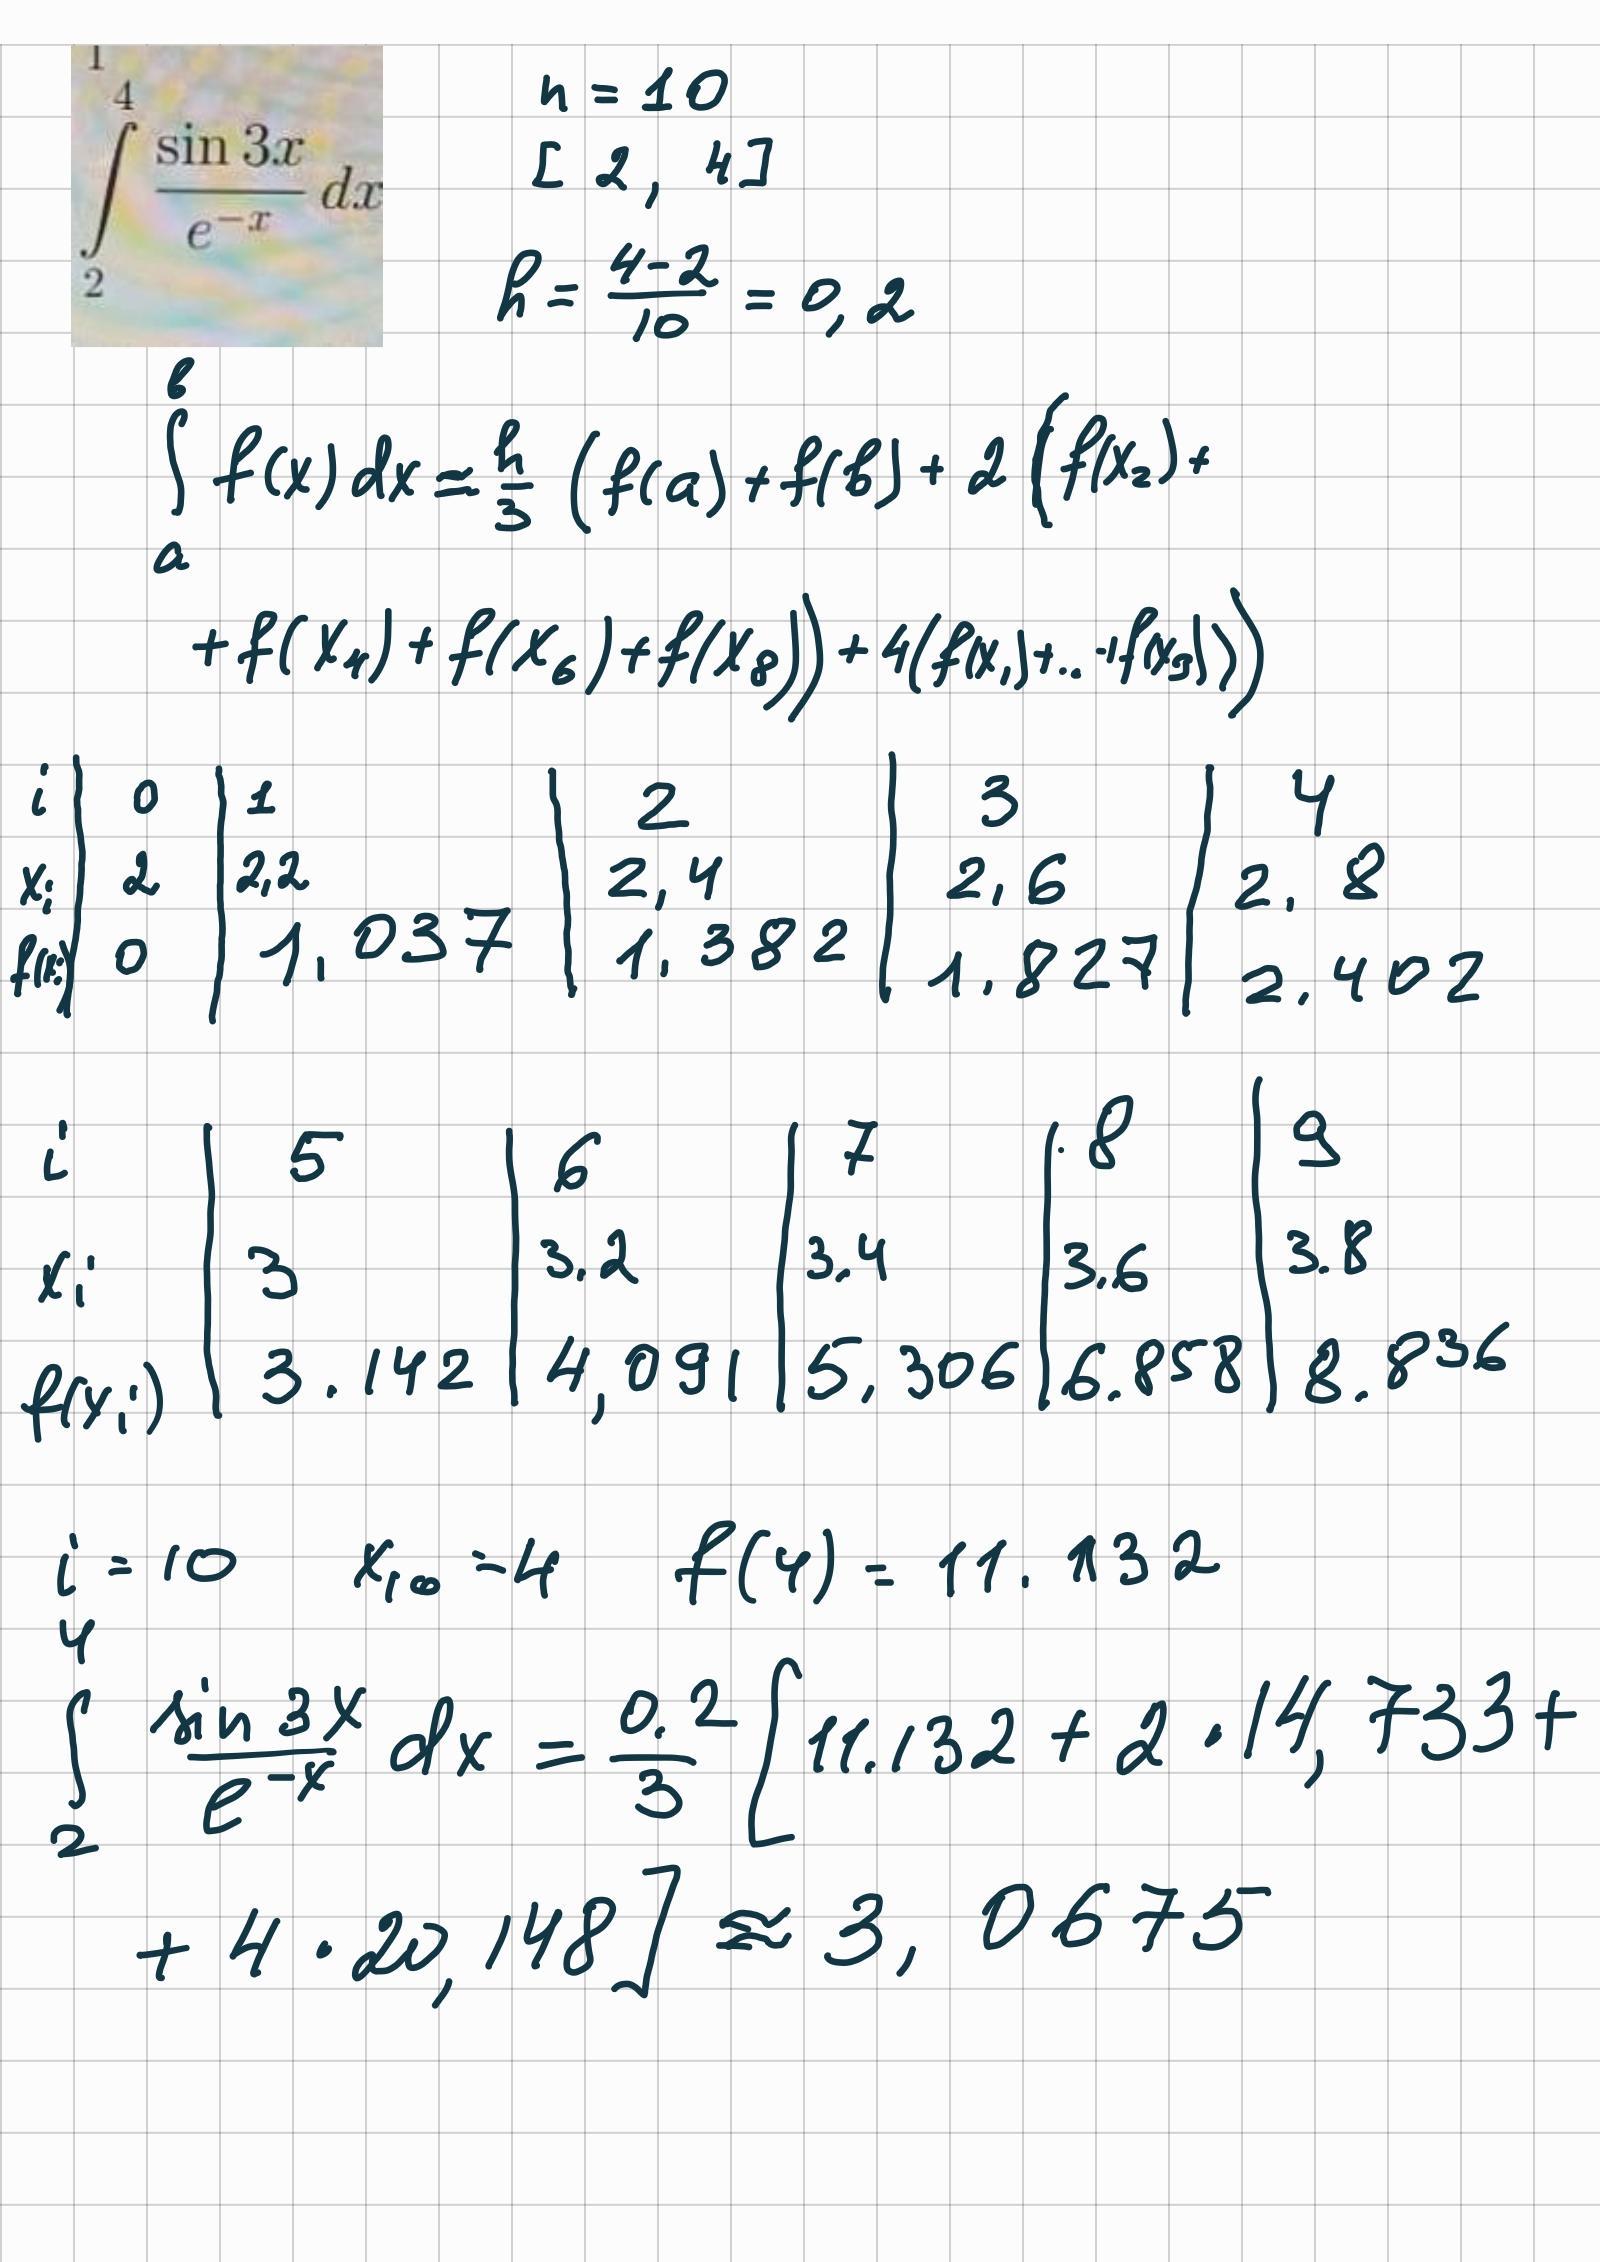 1
∫₂⁴ sin 3x / e^(-x) dx
n = 10
[ 2, 4]
h = (4-2)/10 = 0,2
∫ₐᵇ f(x) dx ≈ h/3 (f(a) + f(b) + 2 (f(x₂) +
+ f(x₄) + f(x₆) + f(x₈)) + 4(f(x₁)+..+f(x₃)))
i | 0 | 1 | 2 | 3 | 4
xi | 2 | 2,2 | 2,4 | 2,6 | 2.8
f(xi) | 0 | 1.037 | 1.382 | 1.827 | 2.402
i | 5 | 6 | 7 | 8 | 9
xi | 3 | 3.2 | 3.4 | 3.6 | 3.8
f(xi) | 3.142 | 4,091 | 5,306 | 6.858 | 8.836
i = 10 x₁₀ = 4 f(4) = 11.132
∫₂⁴ sin 3x / e^(-x) dx = 0.2/3 [11.132 + 2 · 14,733 +
+ 4 · 20,148] ≈ 3,0675